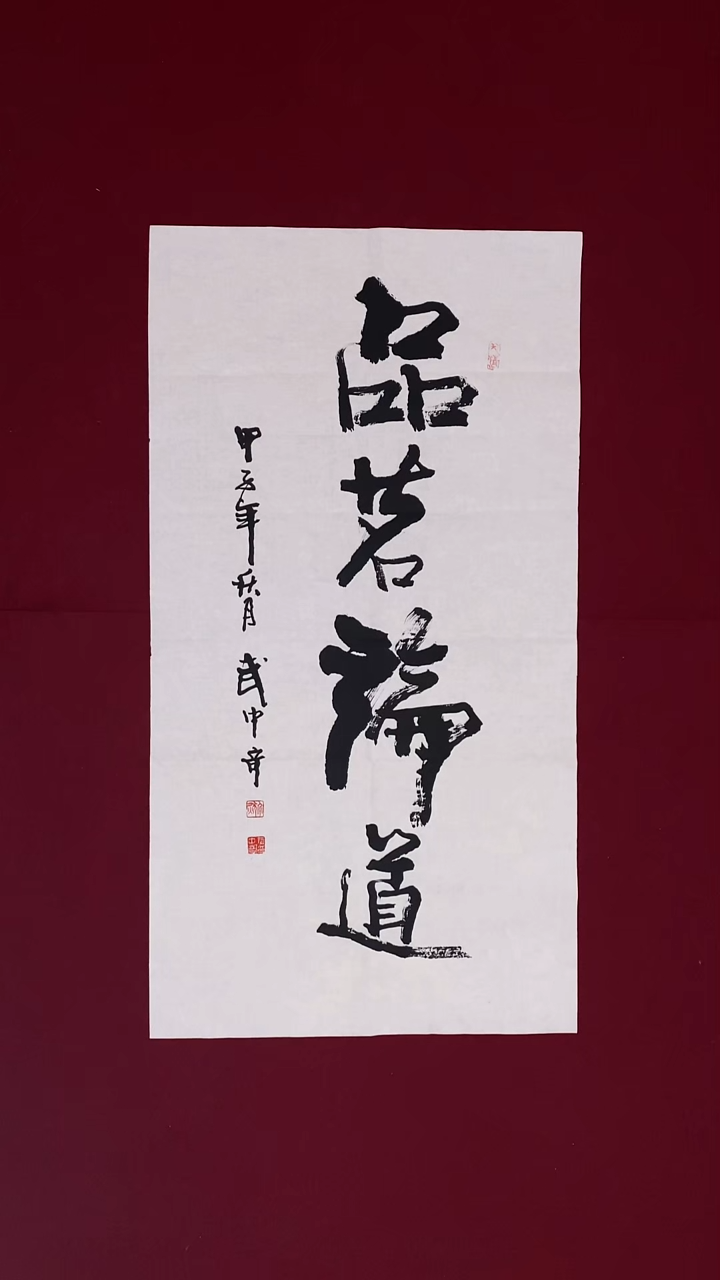 品茗論道
甲子年秋月 武中奇